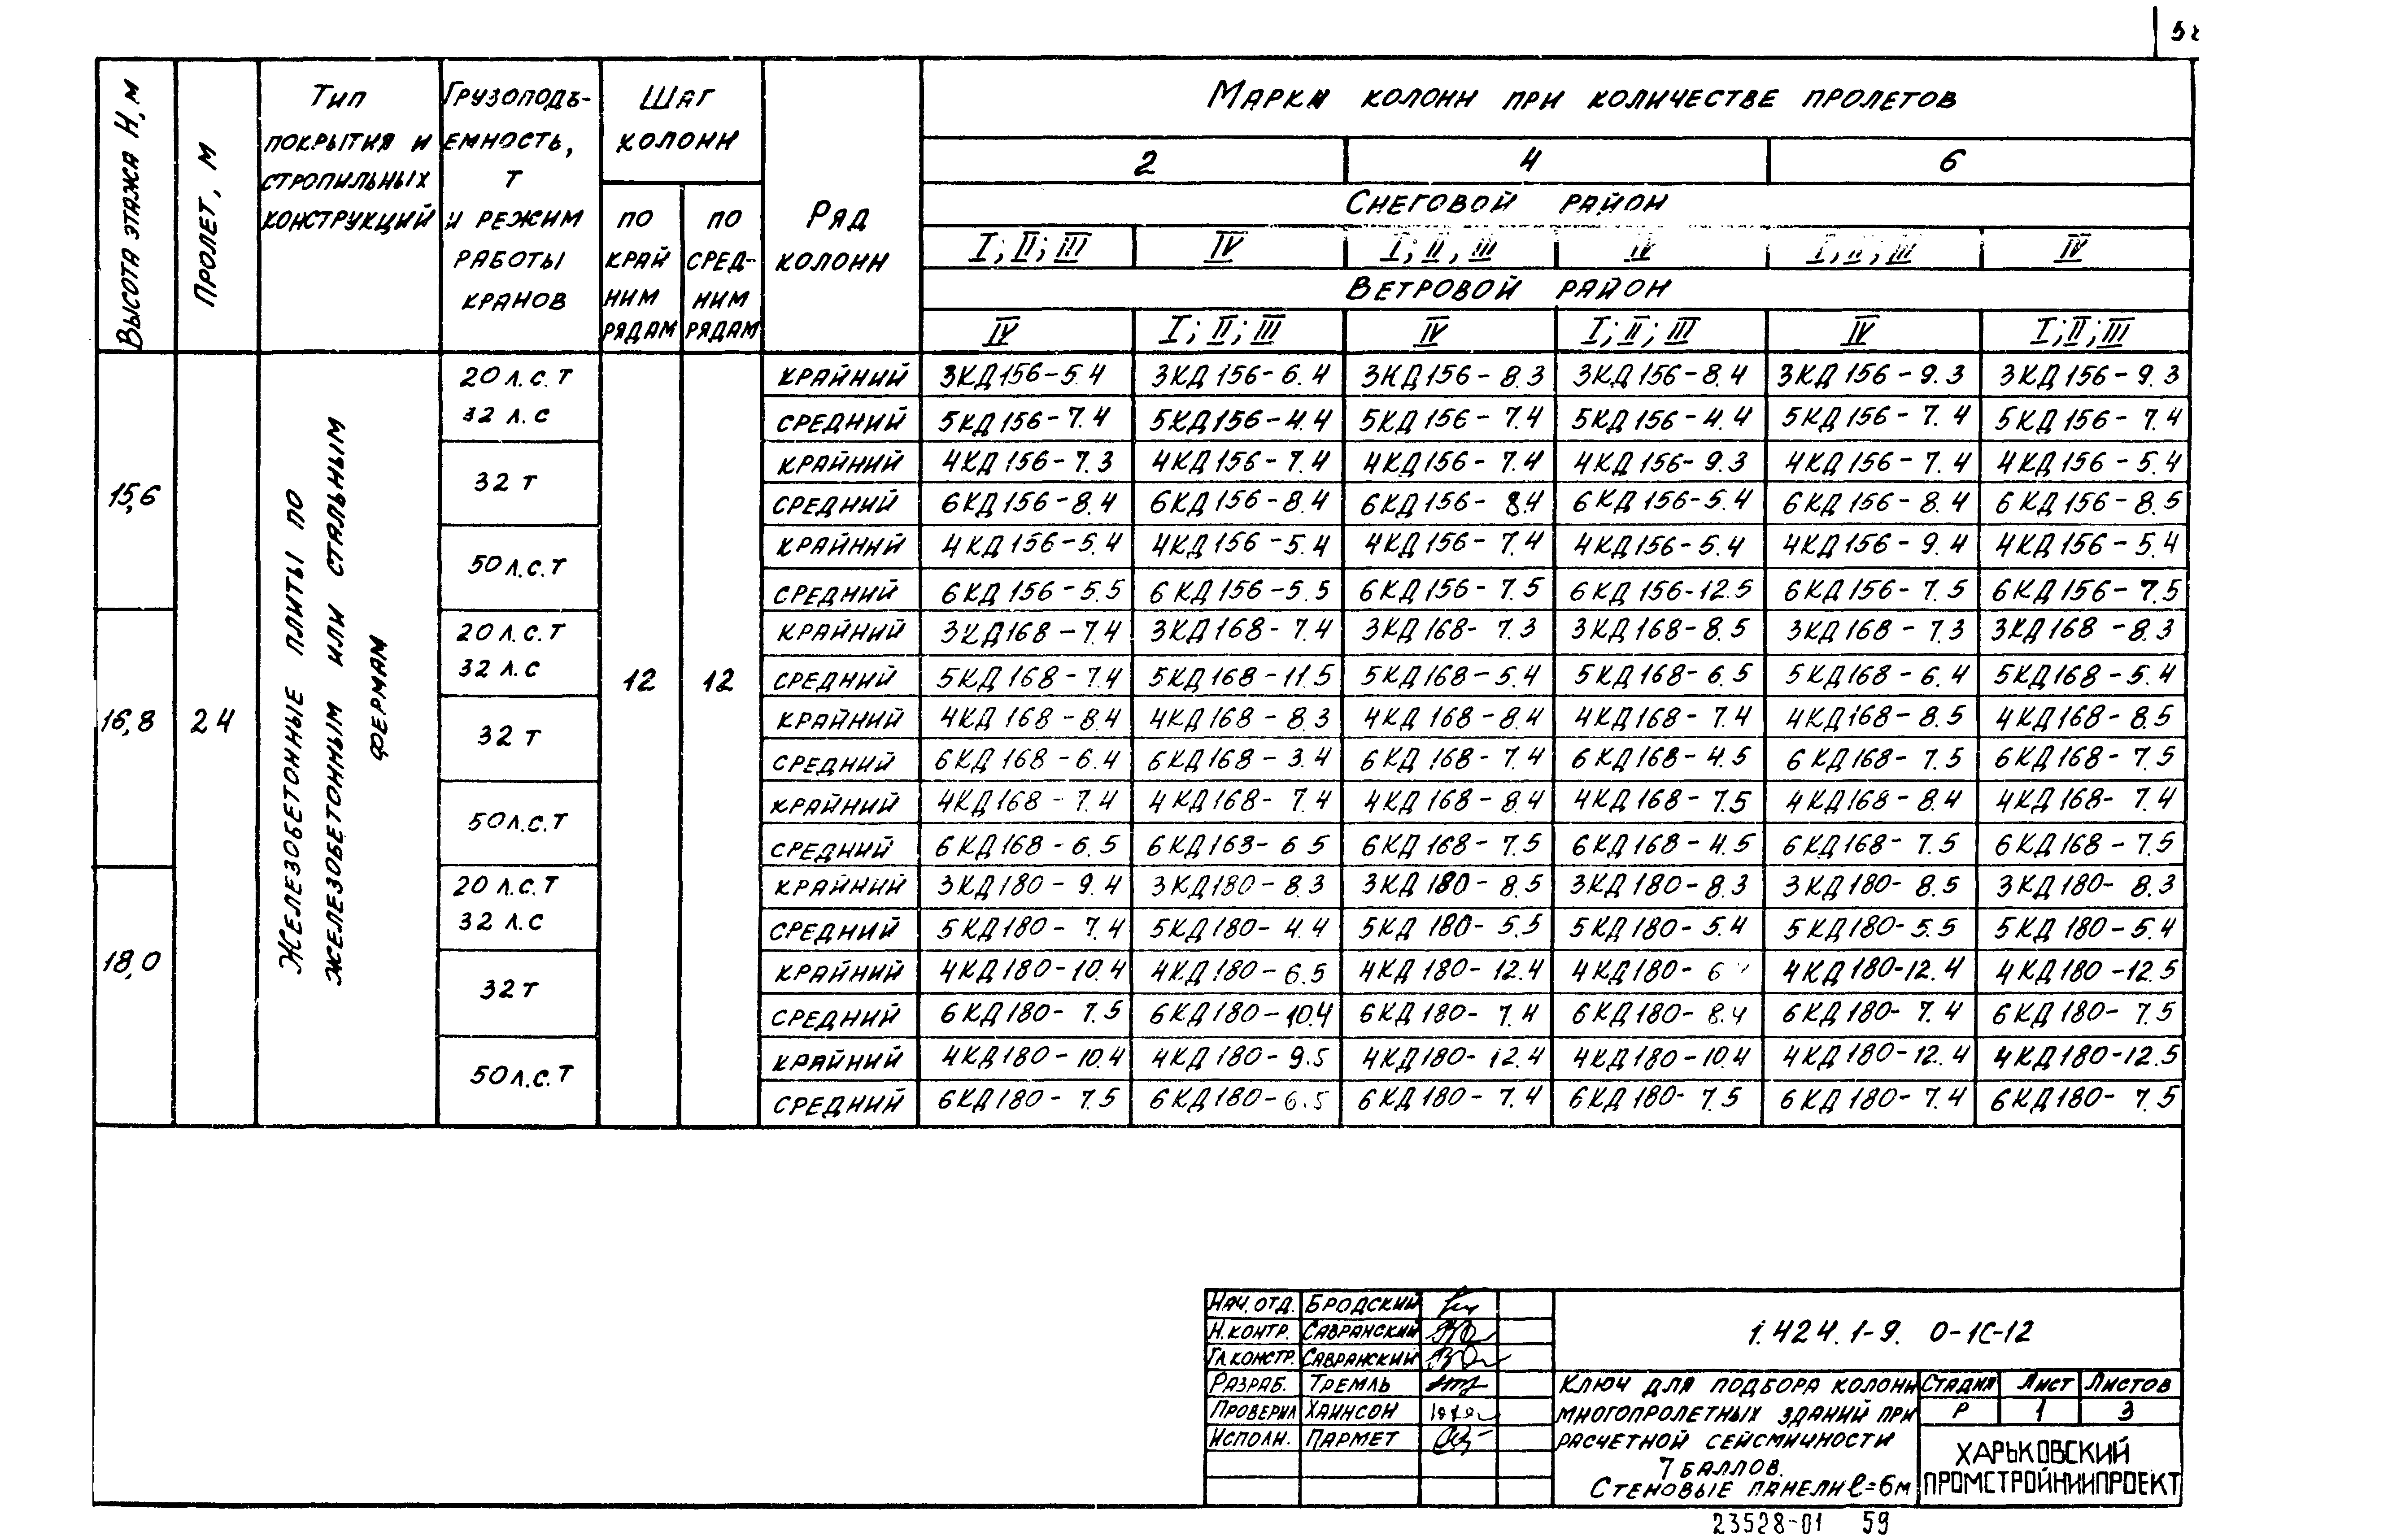 52
Высота этажа Н, м
Пролет, м
Тип покрытия и стропильных конструкций
Грузоподъ-емность, т и режим работы кранов
Шаг колонн
по край ним рядам
по сред-ним рядам
Ряд колонн
Марки колонн при количестве пролетов
2 4 6
Снеговой район
I; II; III IV I; II, III IV I; II; III IV
Ветровой район
IV I; II; III IV I; II; III IV I; II; III
15,6
16,8
18,0
24
Железобетонные плиты по
железобетонным или стальным
фермам
12 12
20 л.с.т
32 л.с
крайний 3КД156-5.4 3КД156-6.4 3КД156-8.3 3КД156-8.4 3КД156-9.3 3КД156-9.3
средний 5КД156-7.4 5КД156-4.4 5КД156-7.4 5КД156-4.4 5КД156-7.4 5КД156-7.4
32 т
крайний 4КД156-7.3 4КД156-7.4 4КД156-7.4 4КД156-9.3 4КД156-7.4 4КД156-5.4
средний 6КД156-8.4 6КД156-8.4 6КД156-8.4 6КД156-5.4 6КД156-8.4 6КД156-8.5
50 л.с.т
крайний 4КД156-5.4 4КД156-5.4 4КД156-7.4 4КД156-5.4 4КД156-9.4 4КД156-5.4
средний 6КД156-5.5 6КД156-5.5 6КД156-7.5 6КД156-12.5 6КД156-7.5 6КД156-7.5
20 л.с.т
32 л.с
крайний 3КД168-7.4 3КД168-7.4 3КД168-7.3 3КД168-8.5 3КД168-7.3 3КД168-8.3
средний 5КД168-7.4 5КД168-11.5 5КД168-5.4 5КД168-6.5 5КД168-6.4 5КД168-5.4
32 т
крайний 4КД168-8.4 4КД168-8.3 4КД168-8.4 4КД168-7.4 4КД168-8.5 4КД168-8.5
средний 6КД168-6.4 6КД168-3.4 6КД168-7.4 6КД168-4.5 6КД168-7.5 6КД168-7.5
50 л.с.т
крайний 4КД168-7.4 4КД168-7.4 4КД168-8.4 4КД168-7.5 4КД168-8.4 4КД168-7.4
средний 6КД168-6.5 6КД168-6.5 6КД168-7.5 6КД168-4.5 6КД168-7.5 6КД168-7.5
20 л.с.т
32 л.с
крайний 3КД180-9.4 3КД180-8.3 3КД180-8.5 3КД180-8.3 3КД180-8.5 3КД180-8.3
средний 5КД180-7.4 5КД180-4.4 5КД180-5.5 5КД180-5.4 5КД180-5.5 5КД180-5.4
32 т
крайний 4КД180-10.4 4КД180-6.5 4КД180-12.4 4КД180-6 4КД180-12.4 4КД180-12.5
средний 6КД180-7.5 6КД180-10.4 6КД180-7.4 6КД180-8.4 6КД180-7.4 6КД180-7.5
50 л.с.т
крайний 4КД180-10.4 4КД180-9.5 4КД180-12.4 4КД180-10.4 4КД180-12.4 4КД180-12.5
средний 6КД180-7.5 6КД180-6.5 6КД180-7.4 6КД180-7.5 6КД180-7.4 6КД180-7.5
Нач. отд. Бродский
Н. контр. Савранский
Гл. констр. Савранский
Разраб. Тремль
Проверил Хаинсон
Исполн. Пармет
1.424.1-9. 0-1С-12
Ключ для подбора колонн
многопролетных зданий при
расчетной сейсмичности
7 баллов.
Стеновые панели ℓ=6м
Стадия Лист Листов
Р 1 3
ХАРЬКОВСКИЙ
ПРОМСТРОЙНИИПРОЕКТ
23528-01 59